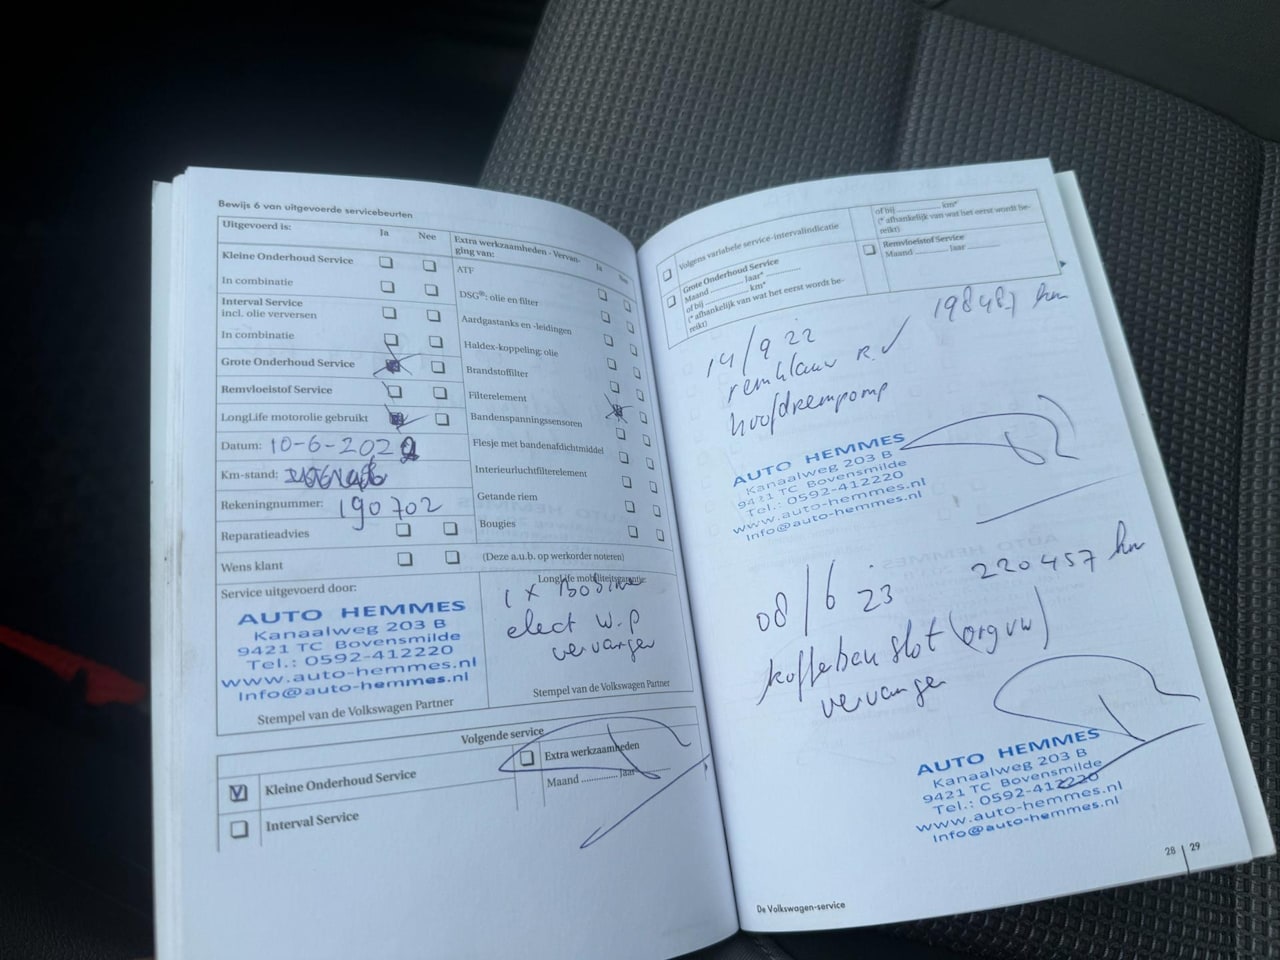 Bewijs 6 van uitgevoerde servicebeurten
Uitgevoerd is:
Ja
Nee
Kleine Onderhoud Service
In combinatie
Interval Service
incl. olie verversen
In combinatie
Grote Onderhoud Service
Remvloeistof Service
LongLife motorolie gebruikt
Datum: 10-6-2022
Km-stand:
Rekeningnummer: 190702
Reparatieadvies
Wens klant
Extra werkzaamheden - Vervan-
ging van:
Ja
Nee
ATF
DSG®: olie en filter
Aardgastanks en -leidingen
Haldex-koppeling: olie
Brandstoffilter
Filterelement
Bandenspanningssensoren
Flesje met bandenafdichtmiddel
Interieurluchtfilterelement
Getande riem
Bougies
(Deze a.u.b. op werkorder noteren)
Service uitgevoerd door:
AUTO HEMMES
Kanaalweg 203 B
9421 TC Bovensmilde
Tel.: 0592-412220
www.auto-hemmes.nl
Info@auto-hemmes.nl
Stempel van de Volkswagen Partner
LongLife mobiliteitsgarantie:
1 x
elect w.p
vervangen
Stempel van de Volkswagen Partner
Volgende service
V
Kleine Onderhoud Service
Interval Service
Extra werkzaamheden
Maand ............. Jaar
Volgens variabele service-intervalindicatie
Grote Onderhoud Service
Maand ............ Jaar* ............
of bij ............ km*
(* afhankelijk van wat het eerst wordt be-
reikt)
of bij ............ km*
(* afhankelijk van wat het eerst wordt be-
reikt)
Remvloeistof Service
Maand ............ Jaar ............
14/9 22
198487 km
remklauw R.V
hoofdrempomp
AUTO HEMMES
Kanaalweg 203 B
9421 TC Bovensmilde
Tel.: 0592-412220
www.auto-hemmes.nl
Info@auto-hemmes.nl
08/6 23
220457 km
kofferbau slot (org vw)
vervangen
AUTO HEMMES
Kanaalweg 203 B
9421 TC Bovensmilde
Tel.: 0592-412220
www.auto-hemmes.nl
Info@auto-hemmes.nl
De Volkswagen-service
28 | 29